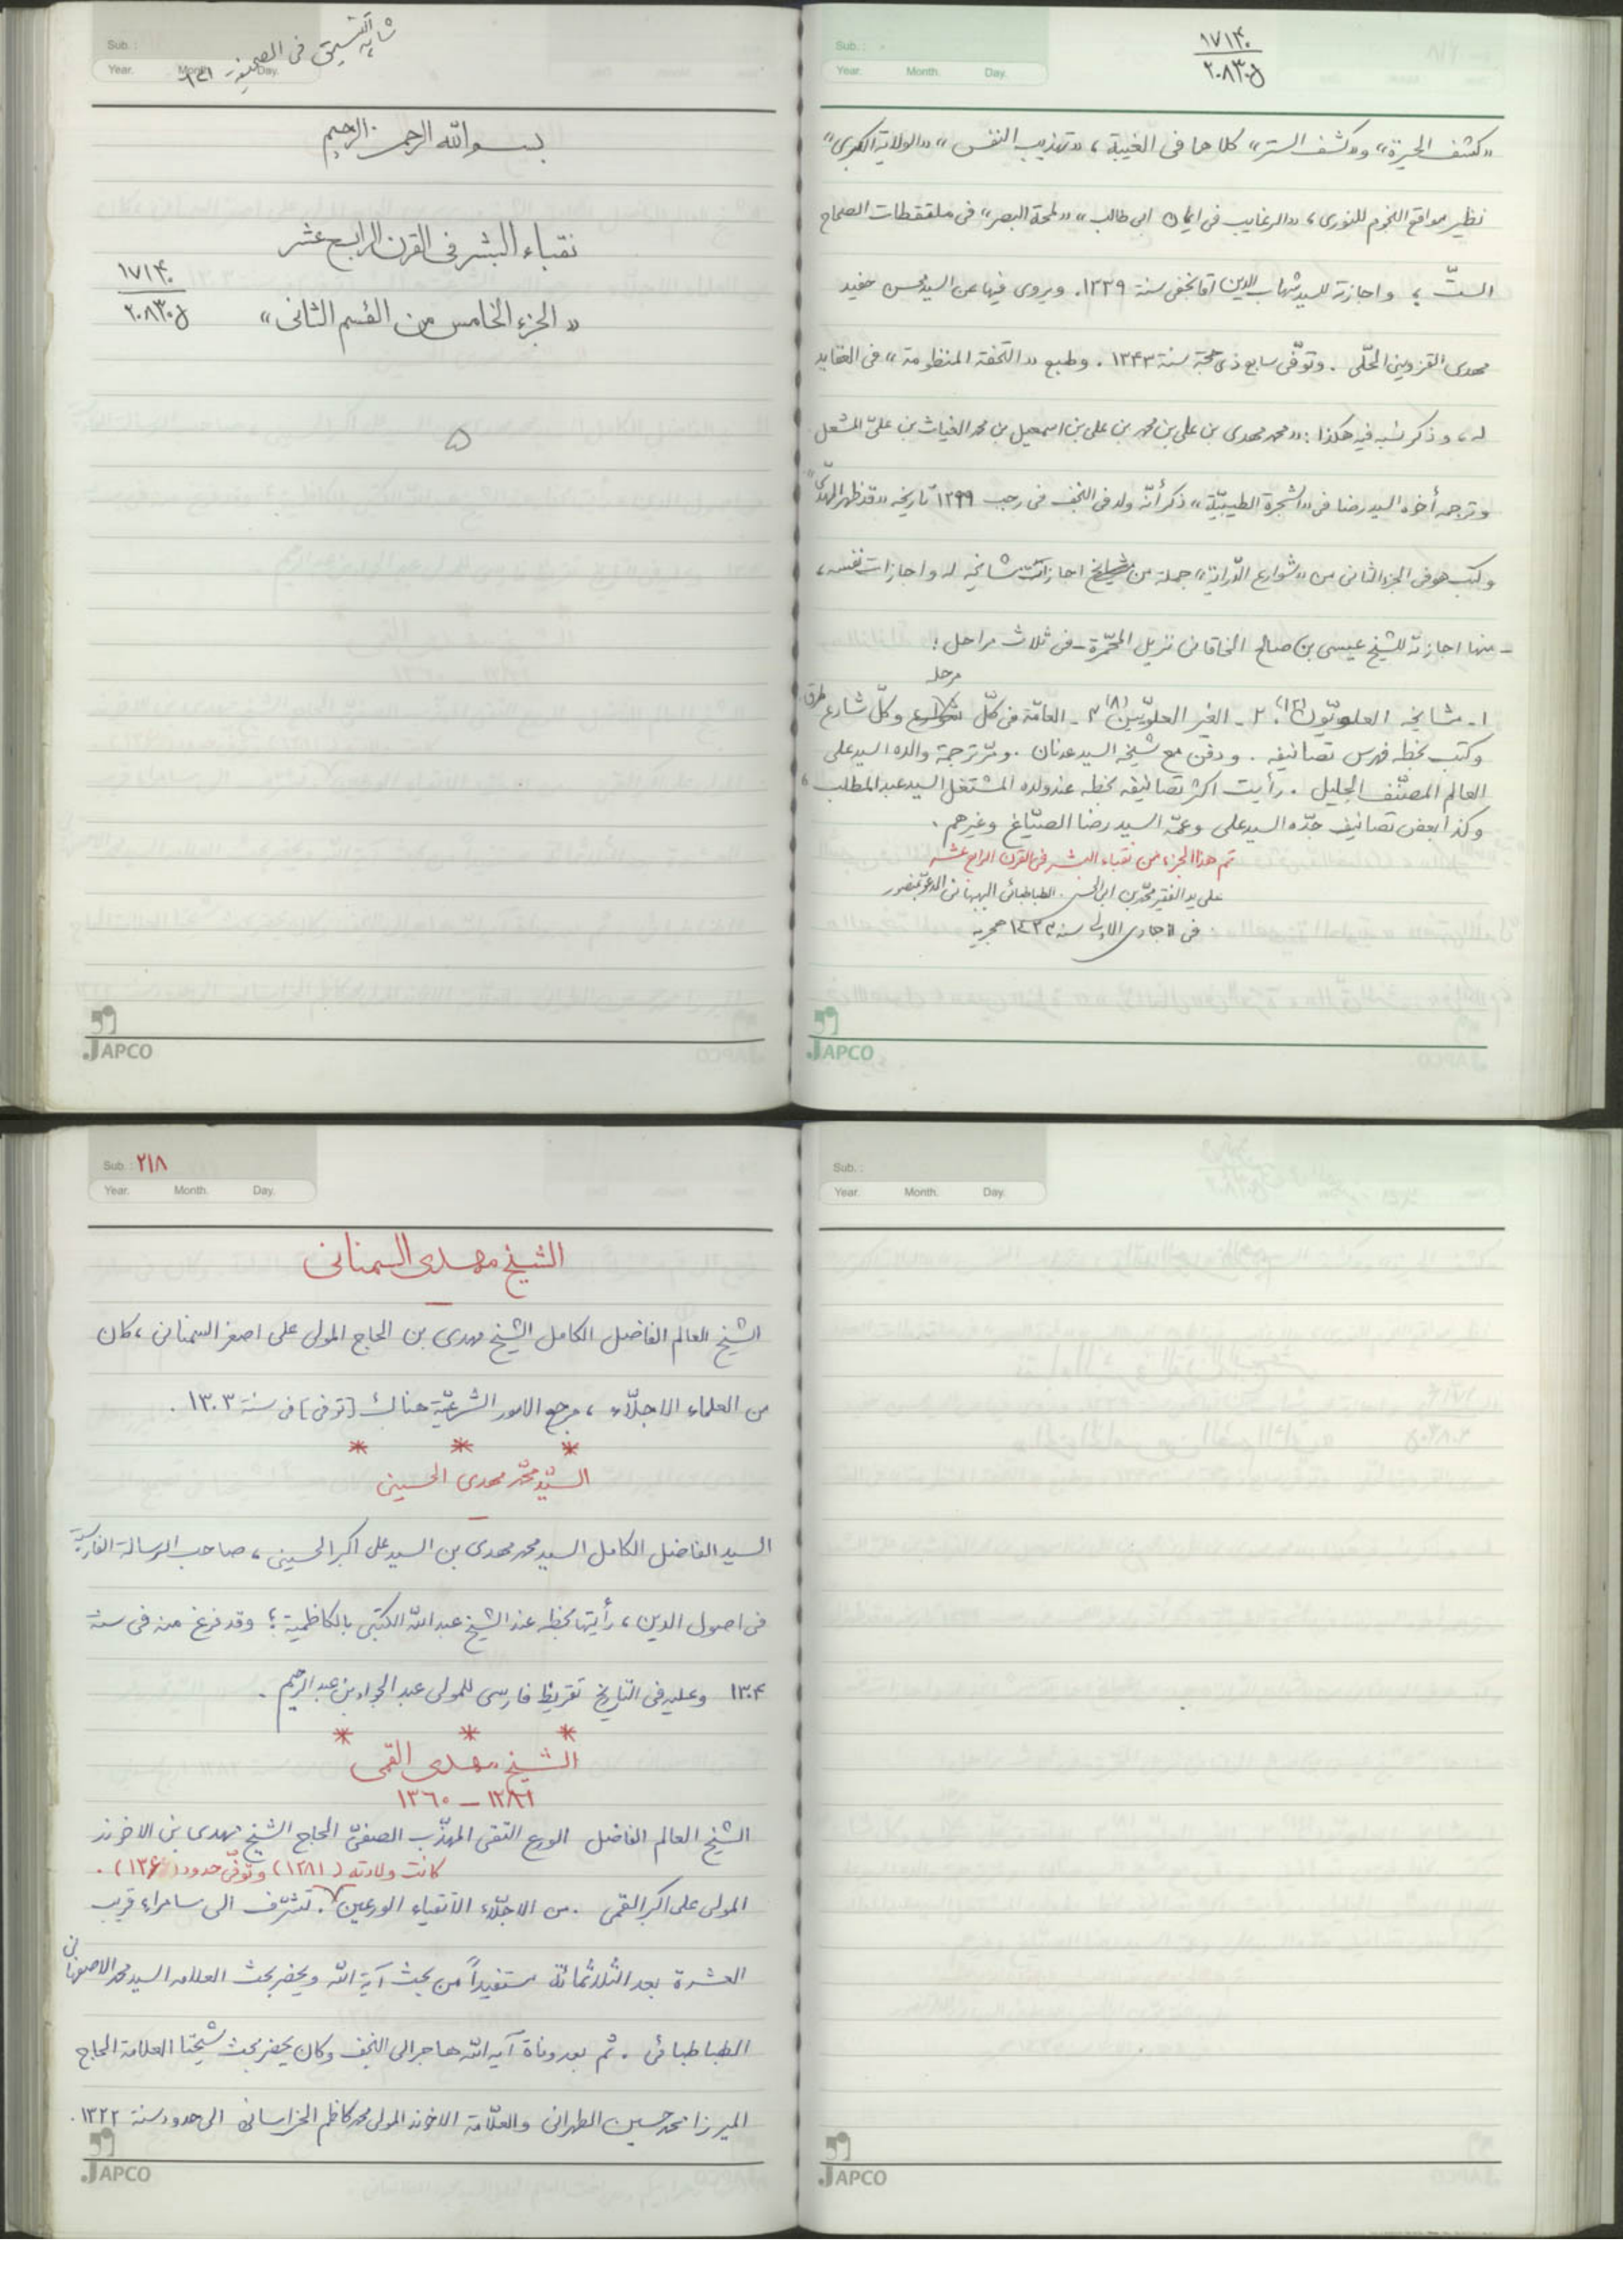 ١٧١٣٠
٢٠٨٣٠٥
Sub. :
Year. Month. Day.
«كشف الحيرة» و«كشف الستر» كلاهما فى الغيبة، «تهذيب النفس» «الولاية الكبرى»
نظير مواقع النجوم للنورى، «الرغايب فى ايمان ابى طالب» «لمحة البصر» فى ملتقطات الصحاح
الستّ؛ واجازته للسيد شهاب الدين آقا نجفى سنة ١٣٣٩. ويروى فيها عن السيد محسن حفيد
مهدى القزوينى الحلّى. وتوفّى سابع ذى حجة سنة ١٣٤٣. وطبع «التحفة المنظومة» فى العقايد
له، وذكر نسبه فيه هكذا: «محمد مهدى بن على بن محمد بن على بن اسمعيل بن محمد الغياث بن علىّ المشعل
وترجمه أخوه السيد رضا فى «الشجرة الطيبيّة» ذكر أنّه ولد فى النجف فى رجب ١٢٩٩ تاريخه «قد ظهر المهدىّ»
وكتب هو فى الجزء الثانى من «شوارع الدّراية» جملة من اجازات مشايخه له واجازات نفسه،
- منها اجازته للشيخ عيسى بن صالح الخاقانى نزيل المحمّرة - فى ثلاث مراحل:
مرحلة
١- مشايخه العلويّون (١٢). ٢- الغير العلويّين (٨) ٣- العامّة فى كلّ وكلّ شارع طرق
وكتب بخطه فهرس تصانيفه. ودفن مع شيخه السيد عدنان. ومرّ ترجمة والده السيد على
العالم المصنّف الجليل. رأيت اكثر تصانيفه بخطه عند ولده المشتغل السيد عبد المطلب،
وكذا بعض تصانيف جدّه السيد على وعمّه السيد رضا الصبّاغ وغيرهم.
تم هذا الجزء من نقباء البشر فى القرن الرابع عشر
على يد الفقير محمّد بن ابى الحسن الطباطبائى البهبهانى المدعوّ بمنصور
فى جمادى الاولى سنة ١٤٣٣ هجرية
JAPCO
Sub. :
Year. Month. Day.
فى الصحيفة
بسم الله الرحمن الرحيم
نقباء البشر فى القرن الرابع عشر
«الجزء الخامس من القسم الثانى»
١٧١٣٠
٢٠٨٣٠٥
٥
JAPCO
Sub. :
Year. Month. Day.
JAPCO
Sub. : ٢١٨
Year. Month. Day.
الشيخ مهدى السمنانى
الشيخ العالم الفاضل الكامل الشيخ مهدى بن الحاج المولى على اصغر السمنانى، كان
من العلماء الاجلّاء، مرجع الامور الشرعيّة هناك [توفى] فى سنة ١٣٠٣.
* * *
السيّد محمّد مهدى الحسينى
السيد الفاضل الكامل السيد محمد مهدى بن السيد على اكبر الحسينى، صاحب الرسالة الفارسية
فى اصول الدين، رأيتها بخطه عند الشيخ عبد الله الكتبى بالكاظمية؛ وقد فرغ منه فى سنة
١٣٠٤ وعليه فى التاريخ تقريظ فارسى للمولى عبد الجواد بن عبد الرحيم.
* * *
الشيخ مهدى القمى
١٢٨١ - ١٣٦٠
الشيخ العالم الفاضل الورع التقى المهذّب الصفىّ الحاج الشيخ مهدى بن الاخوند
كانت ولادته (١٢٨١) وتوفّى حدود (١٣٦٠).
المولى على اكبر القمى. من الاجلّاء الاتقياء الورعين. تشرّف الى سامراء قريب
العشرة بعد الثلاثمائة مستفيداً من بحث آية الله ويحضر بحث العلامه السيد محمد الاصفهانى
الطباطبائى. ثم بعد وفاة آية الله هاجر الى النجف وكان يحضر بحث شيخنا العلامة الحاج
الميرزا محمد حسين الطهرانى والعلّامة الاخوند المولى محمد كاظم الخراسانى الى حدود سنة ١٣٢٢.
JAPCO